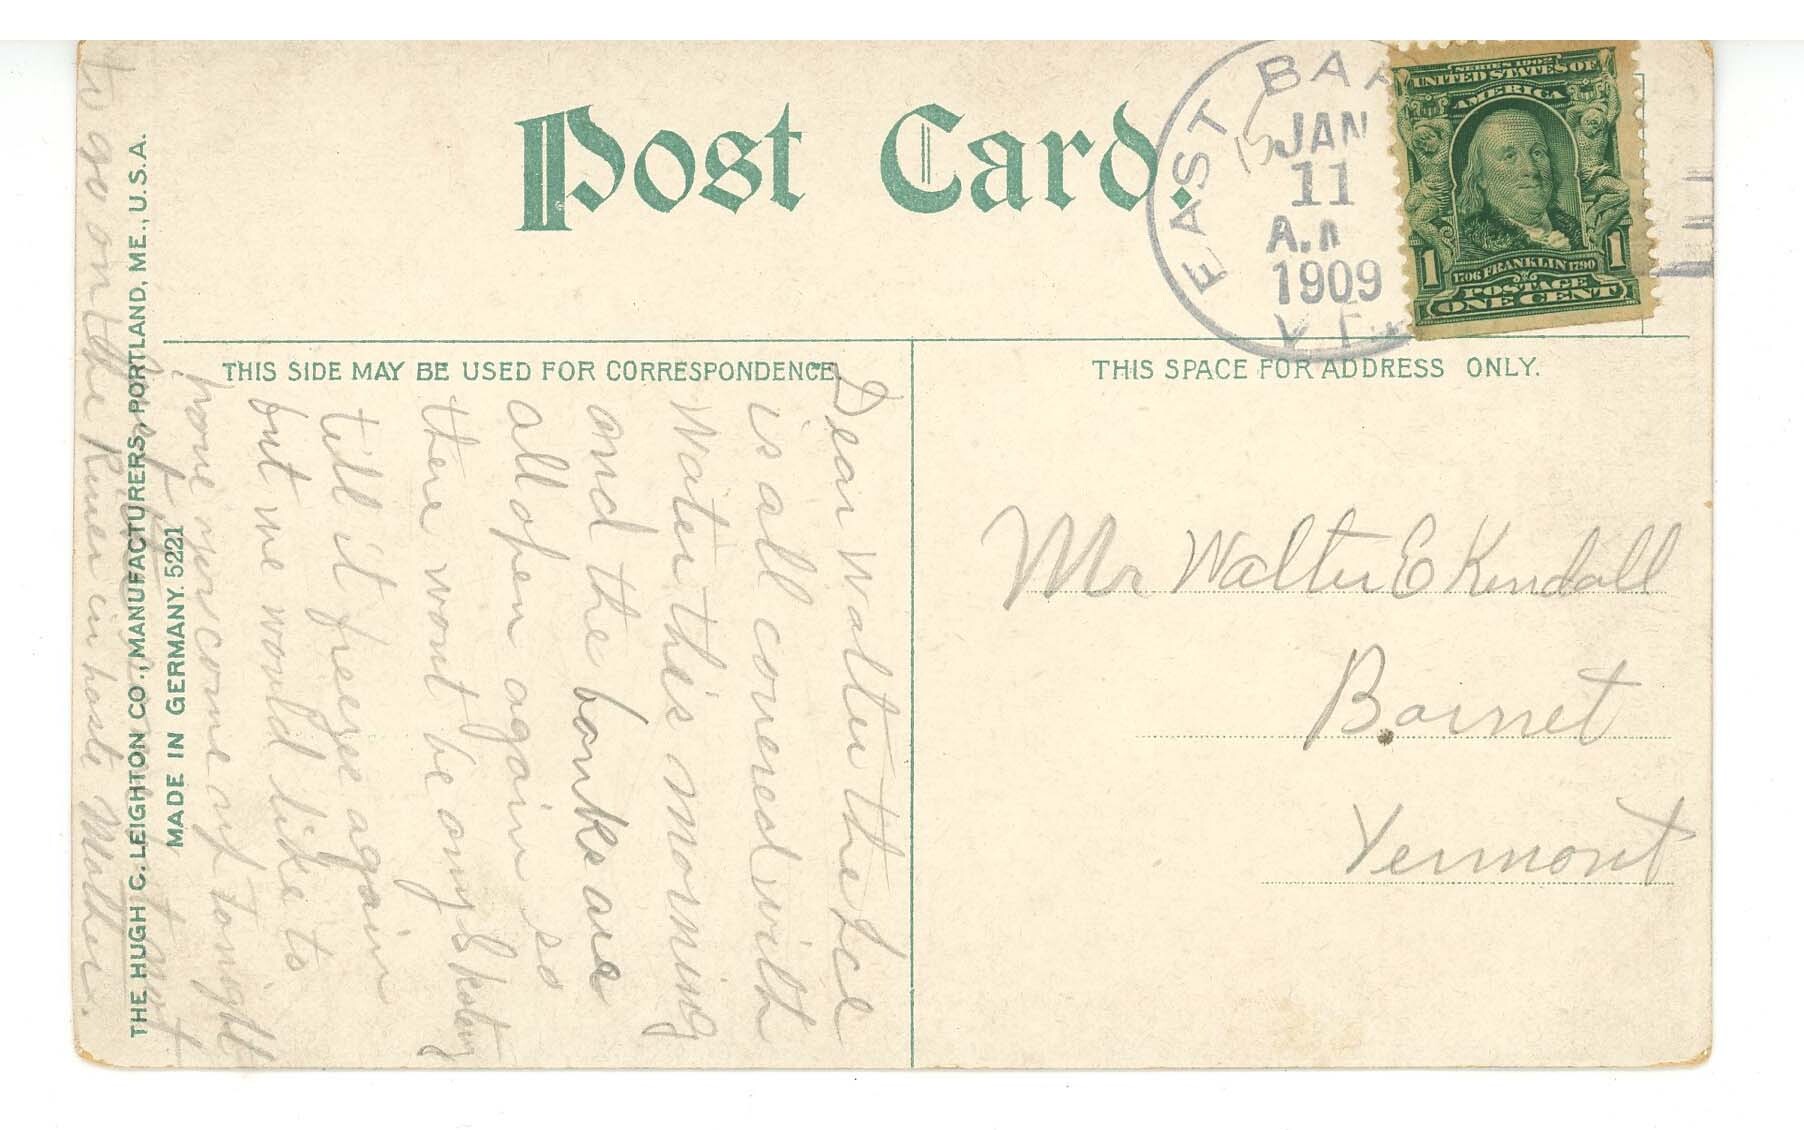 Post Card.
EAST BAR
JAN
11
A.M
1909
VT.
SERIES 1902
UNITED STATES OF
AMERICA
1706 FRANKLIN 1790
POSTAGE
1 1
ONE CENT
THIS SIDE MAY BE USED FOR CORRESPONDENCE
THIS SPACE FOR ADDRESS ONLY.
Dear Walter the Ice
is all covered with
Water this morning
and the banks are
all open again so
there wont be any Skating
till it freeze again
but we would like to
have you come up tonight
to go on the River in haste Mother.
Mr Walter E Kendall
Barnet
Vermont
THE HUGH C. LEIGHTON CO., MANUFACTURERS, PORTLAND, ME., U.S.A.
MADE IN GERMANY. 5221